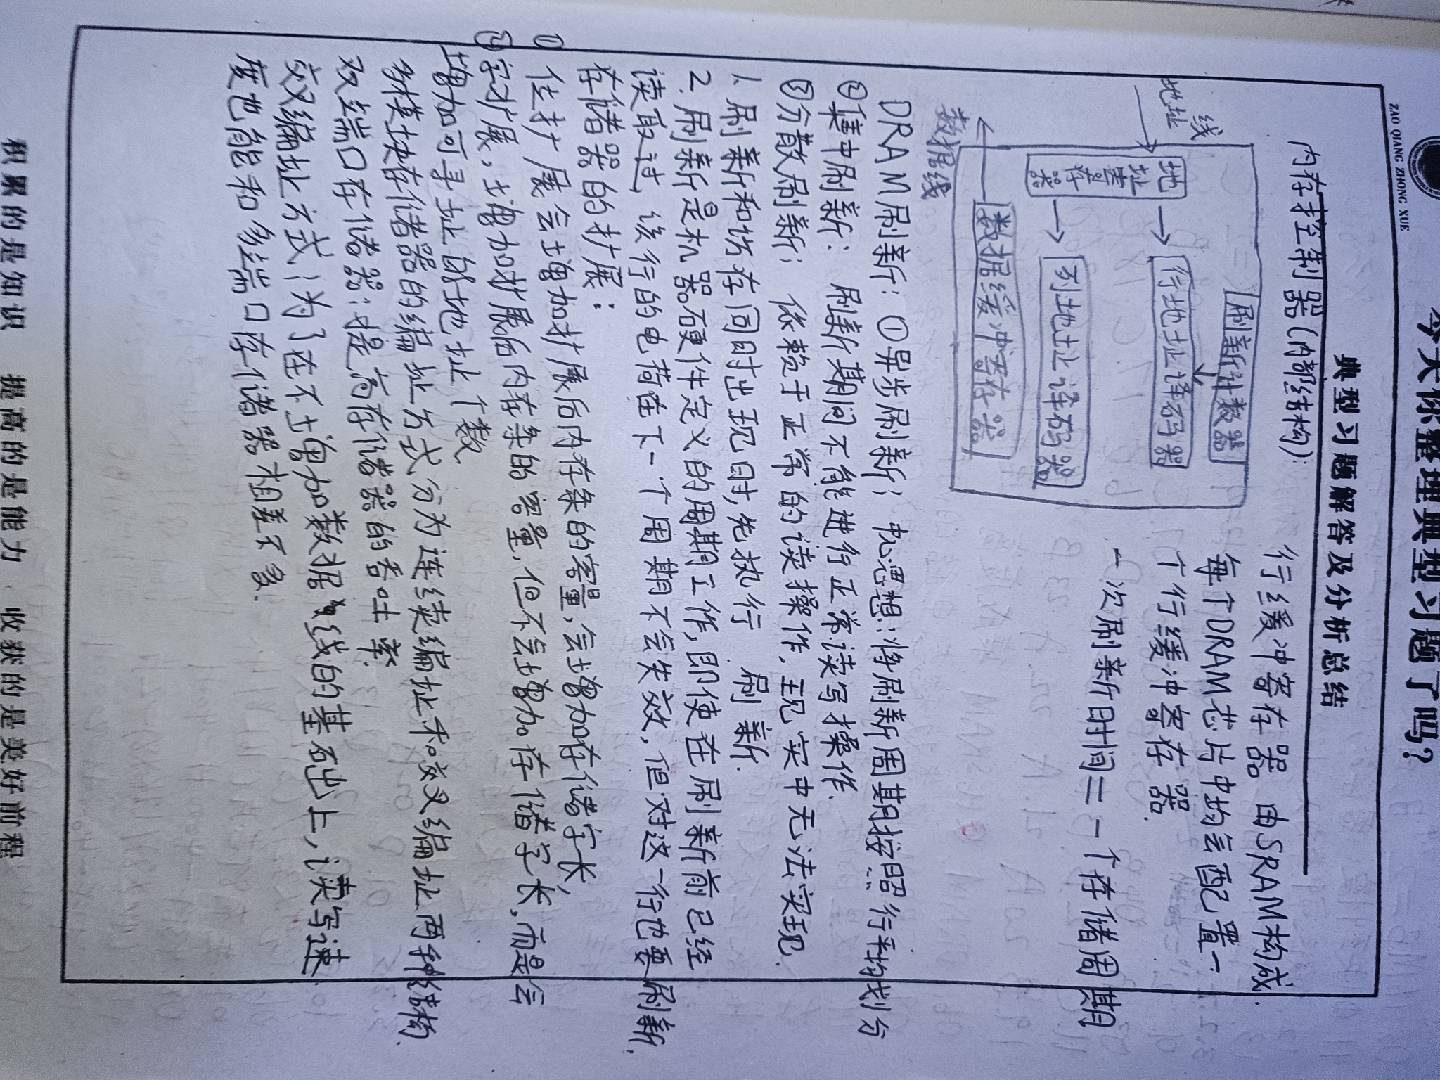 今天你整理典型习题了吗?
ZAO QIANG ZHONG XUE
典型习题解答及分析总结
内存控制器(内部结构):
刷新计数器
线
地址
地址寄存器
行地址译码器
列地址译码器
数据缓冲寄存器
数据线
行缓冲寄存器 由SRAM构成.
每个DRAM芯片中均会配置一
个行缓冲寄存器.
一次刷新时间=一个存储周期
DRAM刷新:①异步刷新;中心思想:将刷新周期按照行平均划分
②集中刷新: 刷新期间不能进行正常读写操作.
③分散刷新; 依赖于正常的读操作,现实中无法实现.
1. 刷新和访存同时出现时,先执行 刷新.
2. 刷新是机器硬件定义的周期工作,即使在刷新前已经
读取过,该行的电荷在下一个周期不会失效,但对这一行也要刷新.
存储器的扩展:
① 位扩展会增加扩展后内存条的容量,会增加存储字长,
②字扩展,增加扩展后内存条的容量,但不会增加存储字长,而是会
增加可寻址的地址个数.
多模块存储器的编址方式分为连续编址和交叉编址两种结构.
双端口存储器:提高存储器的吞吐率.
交叉编址方式;为了在不增加数据线的基础上,读写速
度也能和多端口存储器相差不多.
积累的是知识 提高的是能力 收获的是美好前程